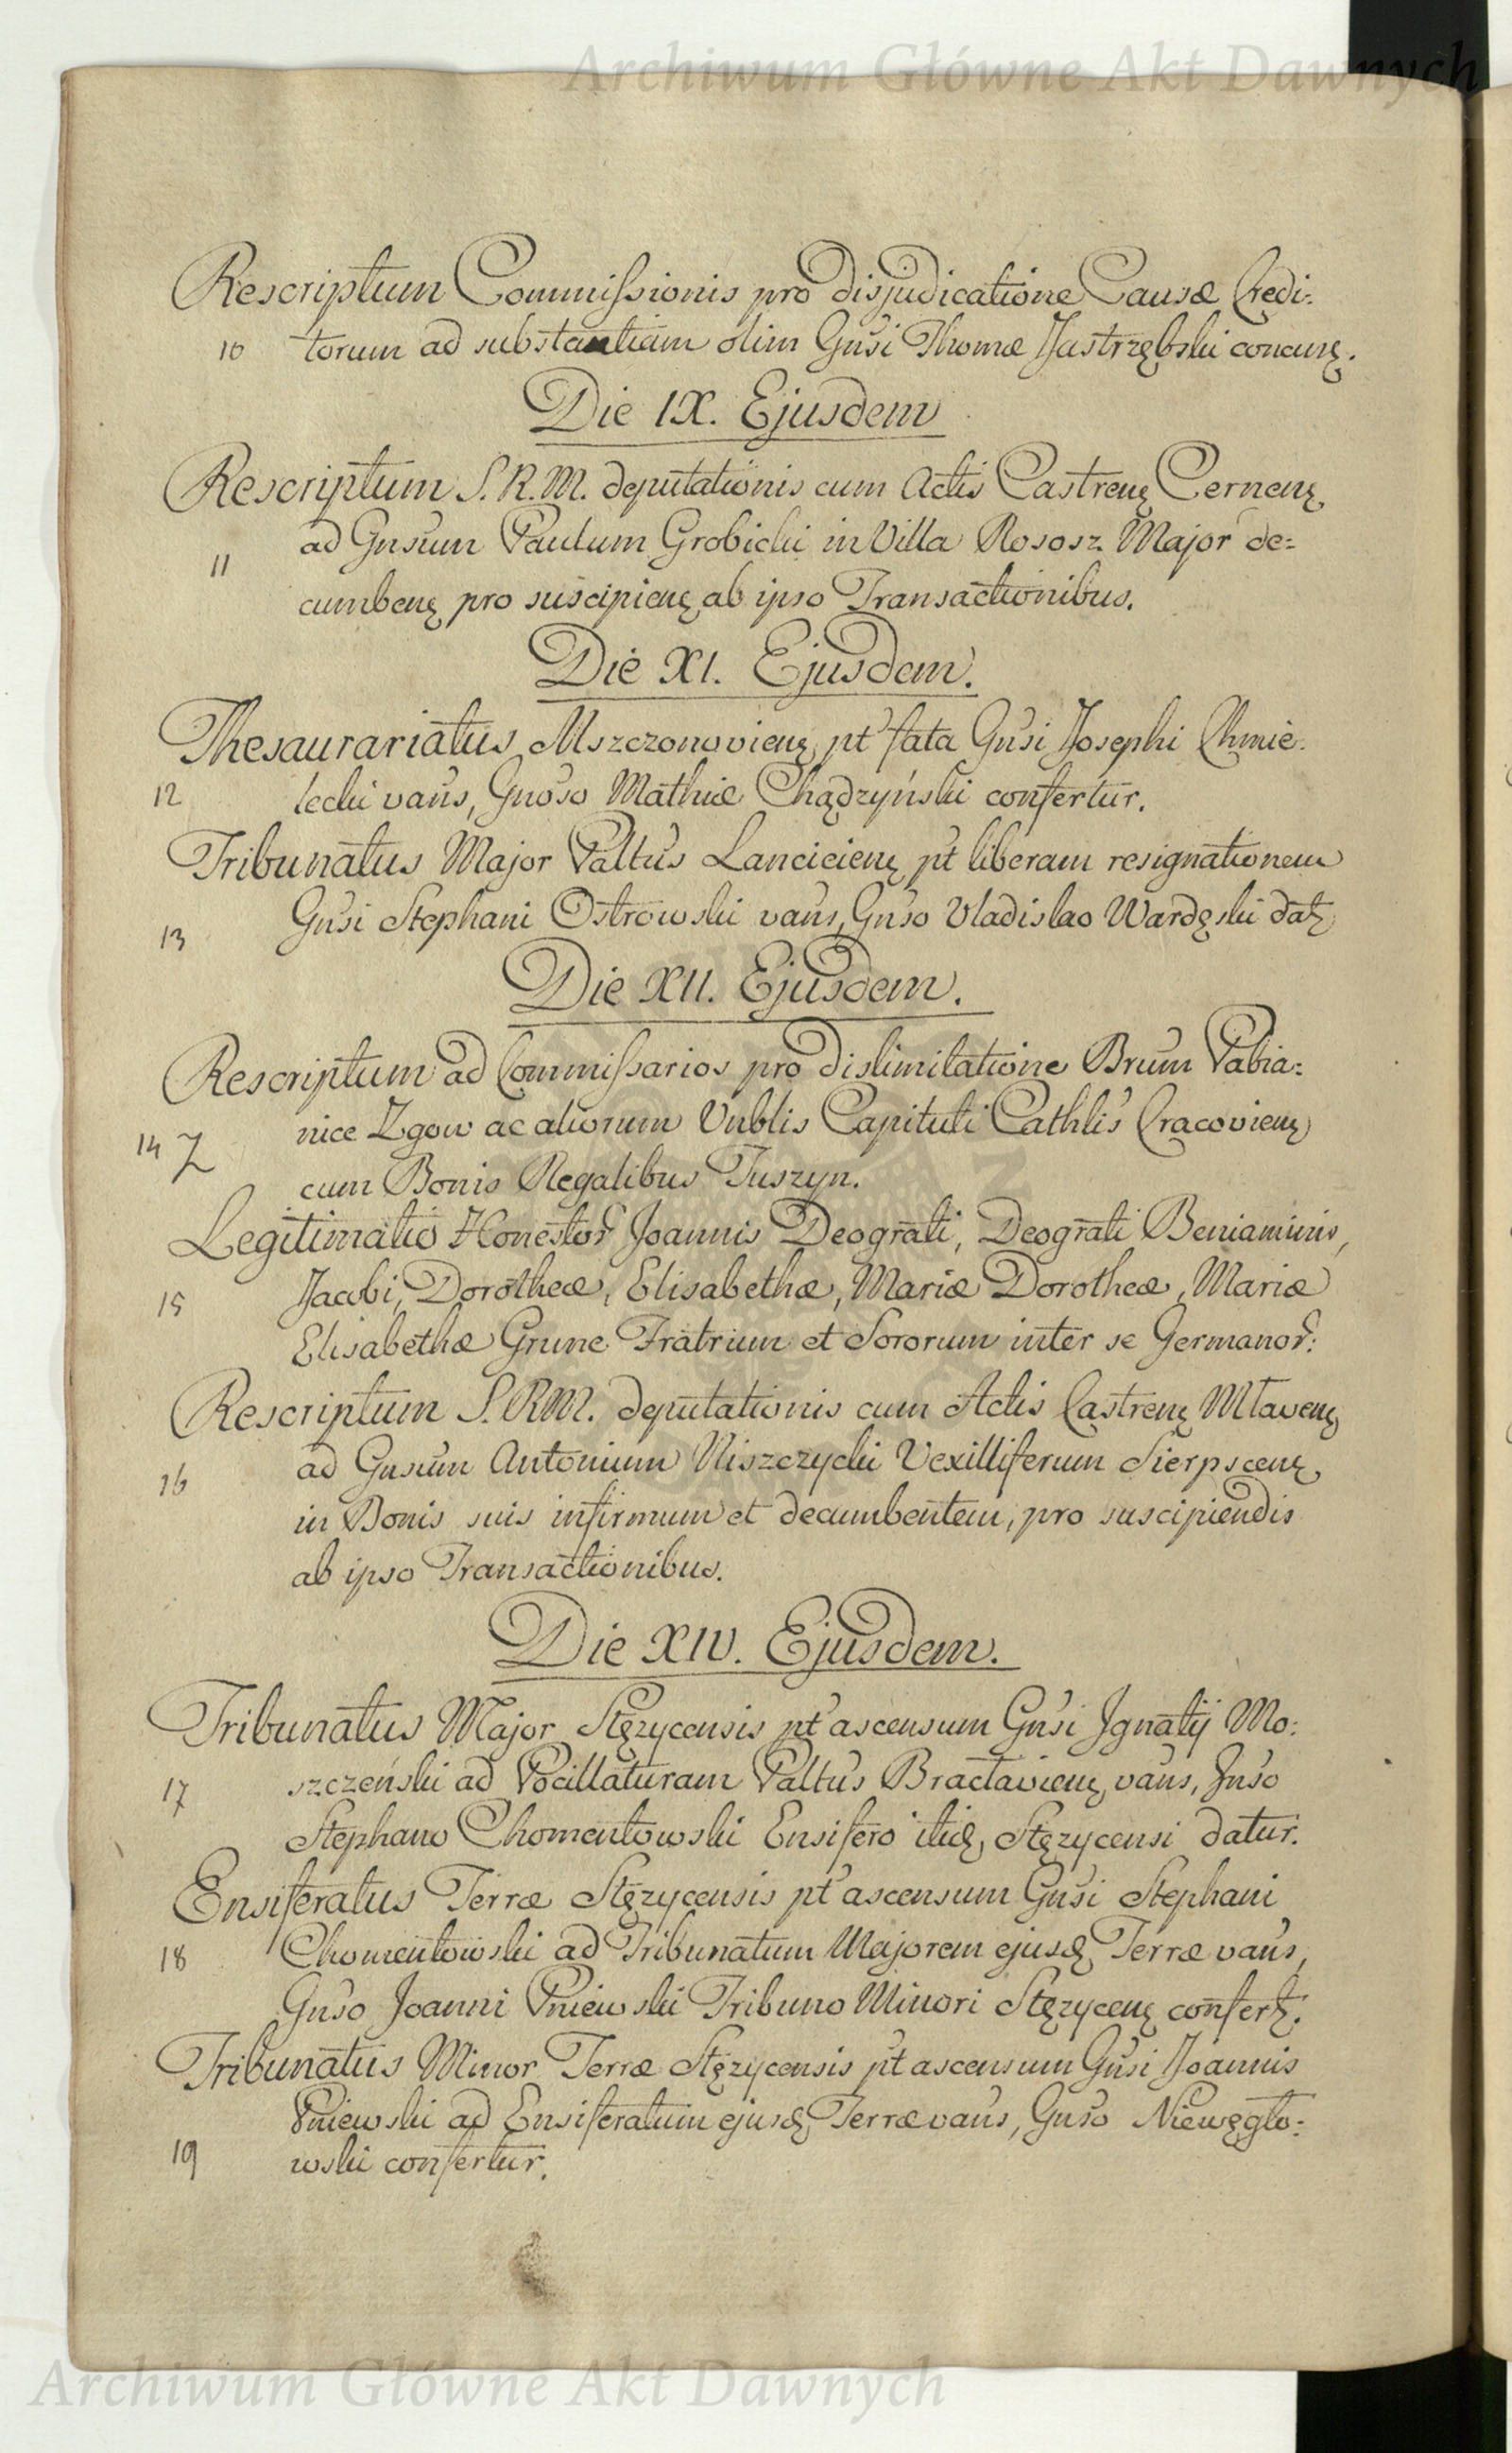 Archiwum Główne Akt Dawnych
Rescriptum Commissionis pro disjudicatione Causæ Credi:
10 torum ad substantiam olim Gnsi Thomæ Jastrzębski concurę.
Die IX. Ejusdem
Rescriptum S.R.M. deputationis cum Actis Castrenę Cernenę
ad Gnsum Paulum Grobicki in Villa Rososz Major de:
11
cumbenę pro suscipienę ab ipso Transactionibus.
Die XI. Ejusdem.
Thesaurariatus Mszczonovienę pt fata Gnsi Josephi Chmie:
12 lecki vans, Gnoso Mathiæ Chądzyński confertur.
Tribunatus Major Paltus Lancicienę pt liberam resignationem
13 Gnsi Stephani Ostrowski vans, Gnso Vladislao Wardęski datꝫ
Die XII. Ejusdem.
Rescriptum ad Commissarios pro dislimitatione Brum Pabia:
14 Z nice Zgow ac aliorum Vnblis Capituli Cathlis Cracovienę
cum Bonis Regalibus Tuszyn.
Legitimatio Honestor Joannis Deograti, Deograti Beniaminis,
15 Jacobi, Dorotheæ, Elisabethæ, Mariæ Dorotheæ, Mariæ
Elisabethæ Grune Fratrum et Sororum inter se Germanor:
Rescriptum S.R.M. deputationis cum Actis Castrenę Mlavenę
16 ad Gnsum Antonium Niszczycki Vexilliferum Sierpscenę
in Bonis suis infirmum et decumbentem, pro suscipiendis
ab ipso Transactionibus.
Die XIV. Ejusdem.
Tribunatus Major Stęzycensis pt ascensum Gnsi Ignatij Mo:
17 szczeński ad Pocillaturam Paltus Bractavienę vans, Gnso
Stephano Chomentowski Ensifero itidę, Stęzycensi datur.
Ensiferatus Terræ Stęzycensis pt ascensum Gnsi Stephani
18 Chomentowski ad Tribunatum Majorem ejusdę Terræ vans,
Gnso Joanni Pniewski Tribuno Minori Stęzycenę confertꝫ.
Tribunatus Minor Terræ Stęzycensis pt ascensum Gnsi Joannis
Pniewski ad Ensiferatum ejusdę Terræ vans, Gnso Niewęgło:
19 wski confertur.
Archiwum Główne Akt Dawnych